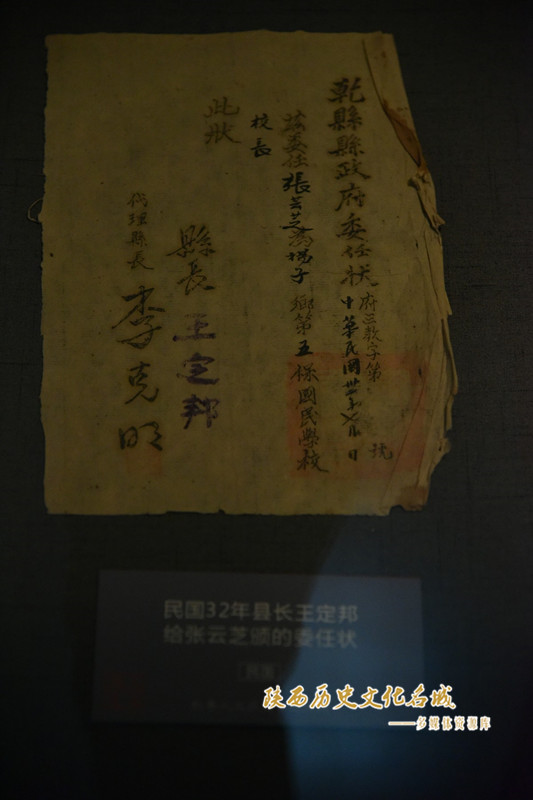 乾縣縣政府委任狀
府三教字第 號
中華民國卅二年七月 日
茲委任張雲芝為楊子鄉第五保國民學校
校長
此狀
縣長 王定邦
代理縣長 李克明
民国32年县长王定邦
给张云芝颁的委任状
陕西历史文化名城
——多媒体资源库